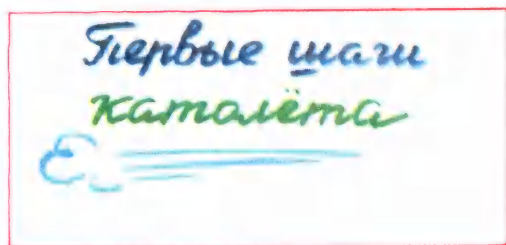 Первые шаги
католёта